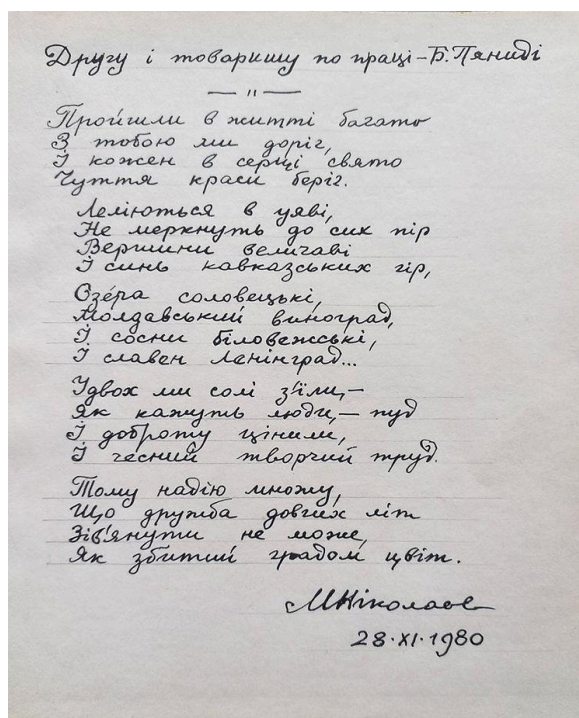 Другу і товаришу по праці – Б. Пяниді
— " —
Пройшли в житті багато
З тобою ми доріг,
І кожен в серці свято
Чуття краси беріг.
Леліються в уяві,
Не меркнуть до сих пір
Вершини величаві
І синь кавказських гір,
Озера соловецькі,
Молдавський виноград,
І сосни біловежські,
І славен Ленінград...
Удвох ми солі з'їли, –
Як кажуть люди, – пуд
І доброту цінили,
І чесний творчий труд.
Тому надію множу,
Що дружба довгих літ
Зів'янути не може,
Як збитий градом цвіт.
МНіколаєв
28·XI·1980